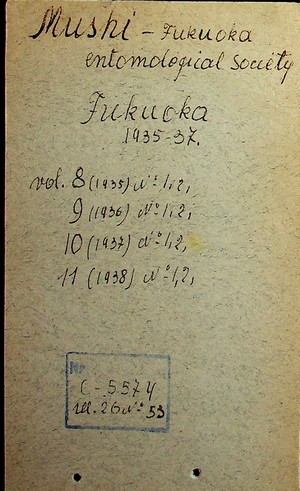 Mushi - Fukuoka
entomological Society
Fukuoka
1935-37.
vol. 8 (1935) No 1,2,
9 (1936) No 1,2,
10 (1937) No 1,2,
11 (1938) No 1,2,
Nr.
C-5574
26 No 53